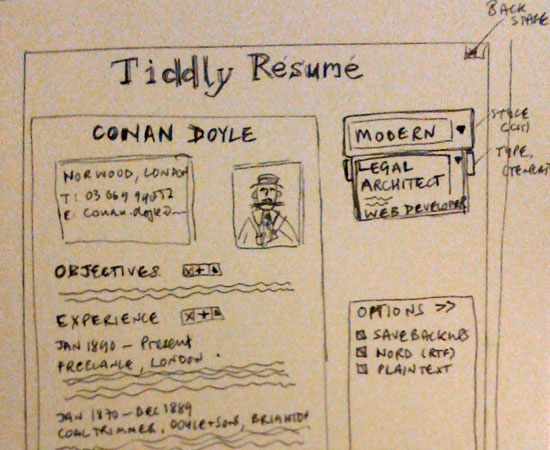 BACK
STAGE
Tiddly Résumé
CONAN DOYLE
NORWOOD, LONDON
T: 03 069 99012
E: conan.doyle@
OBJECTIVES X + ▲
EXPERIENCE X + ▲
JAN 1890 - Present
FREELANCE, LONDON.
JAN 1870 - DEC 1889
COAL TRIMMER, DOYLE + SONS, BRIGHTON
MODERN ▼
STYLE
(CSS)
LEGAL ▼
ARCHITECT
WEB DEVELOPER
TYPE,
OPTIONS >>
SAVE BACKUPS
WORD (RTF)
PLAIN TEXT